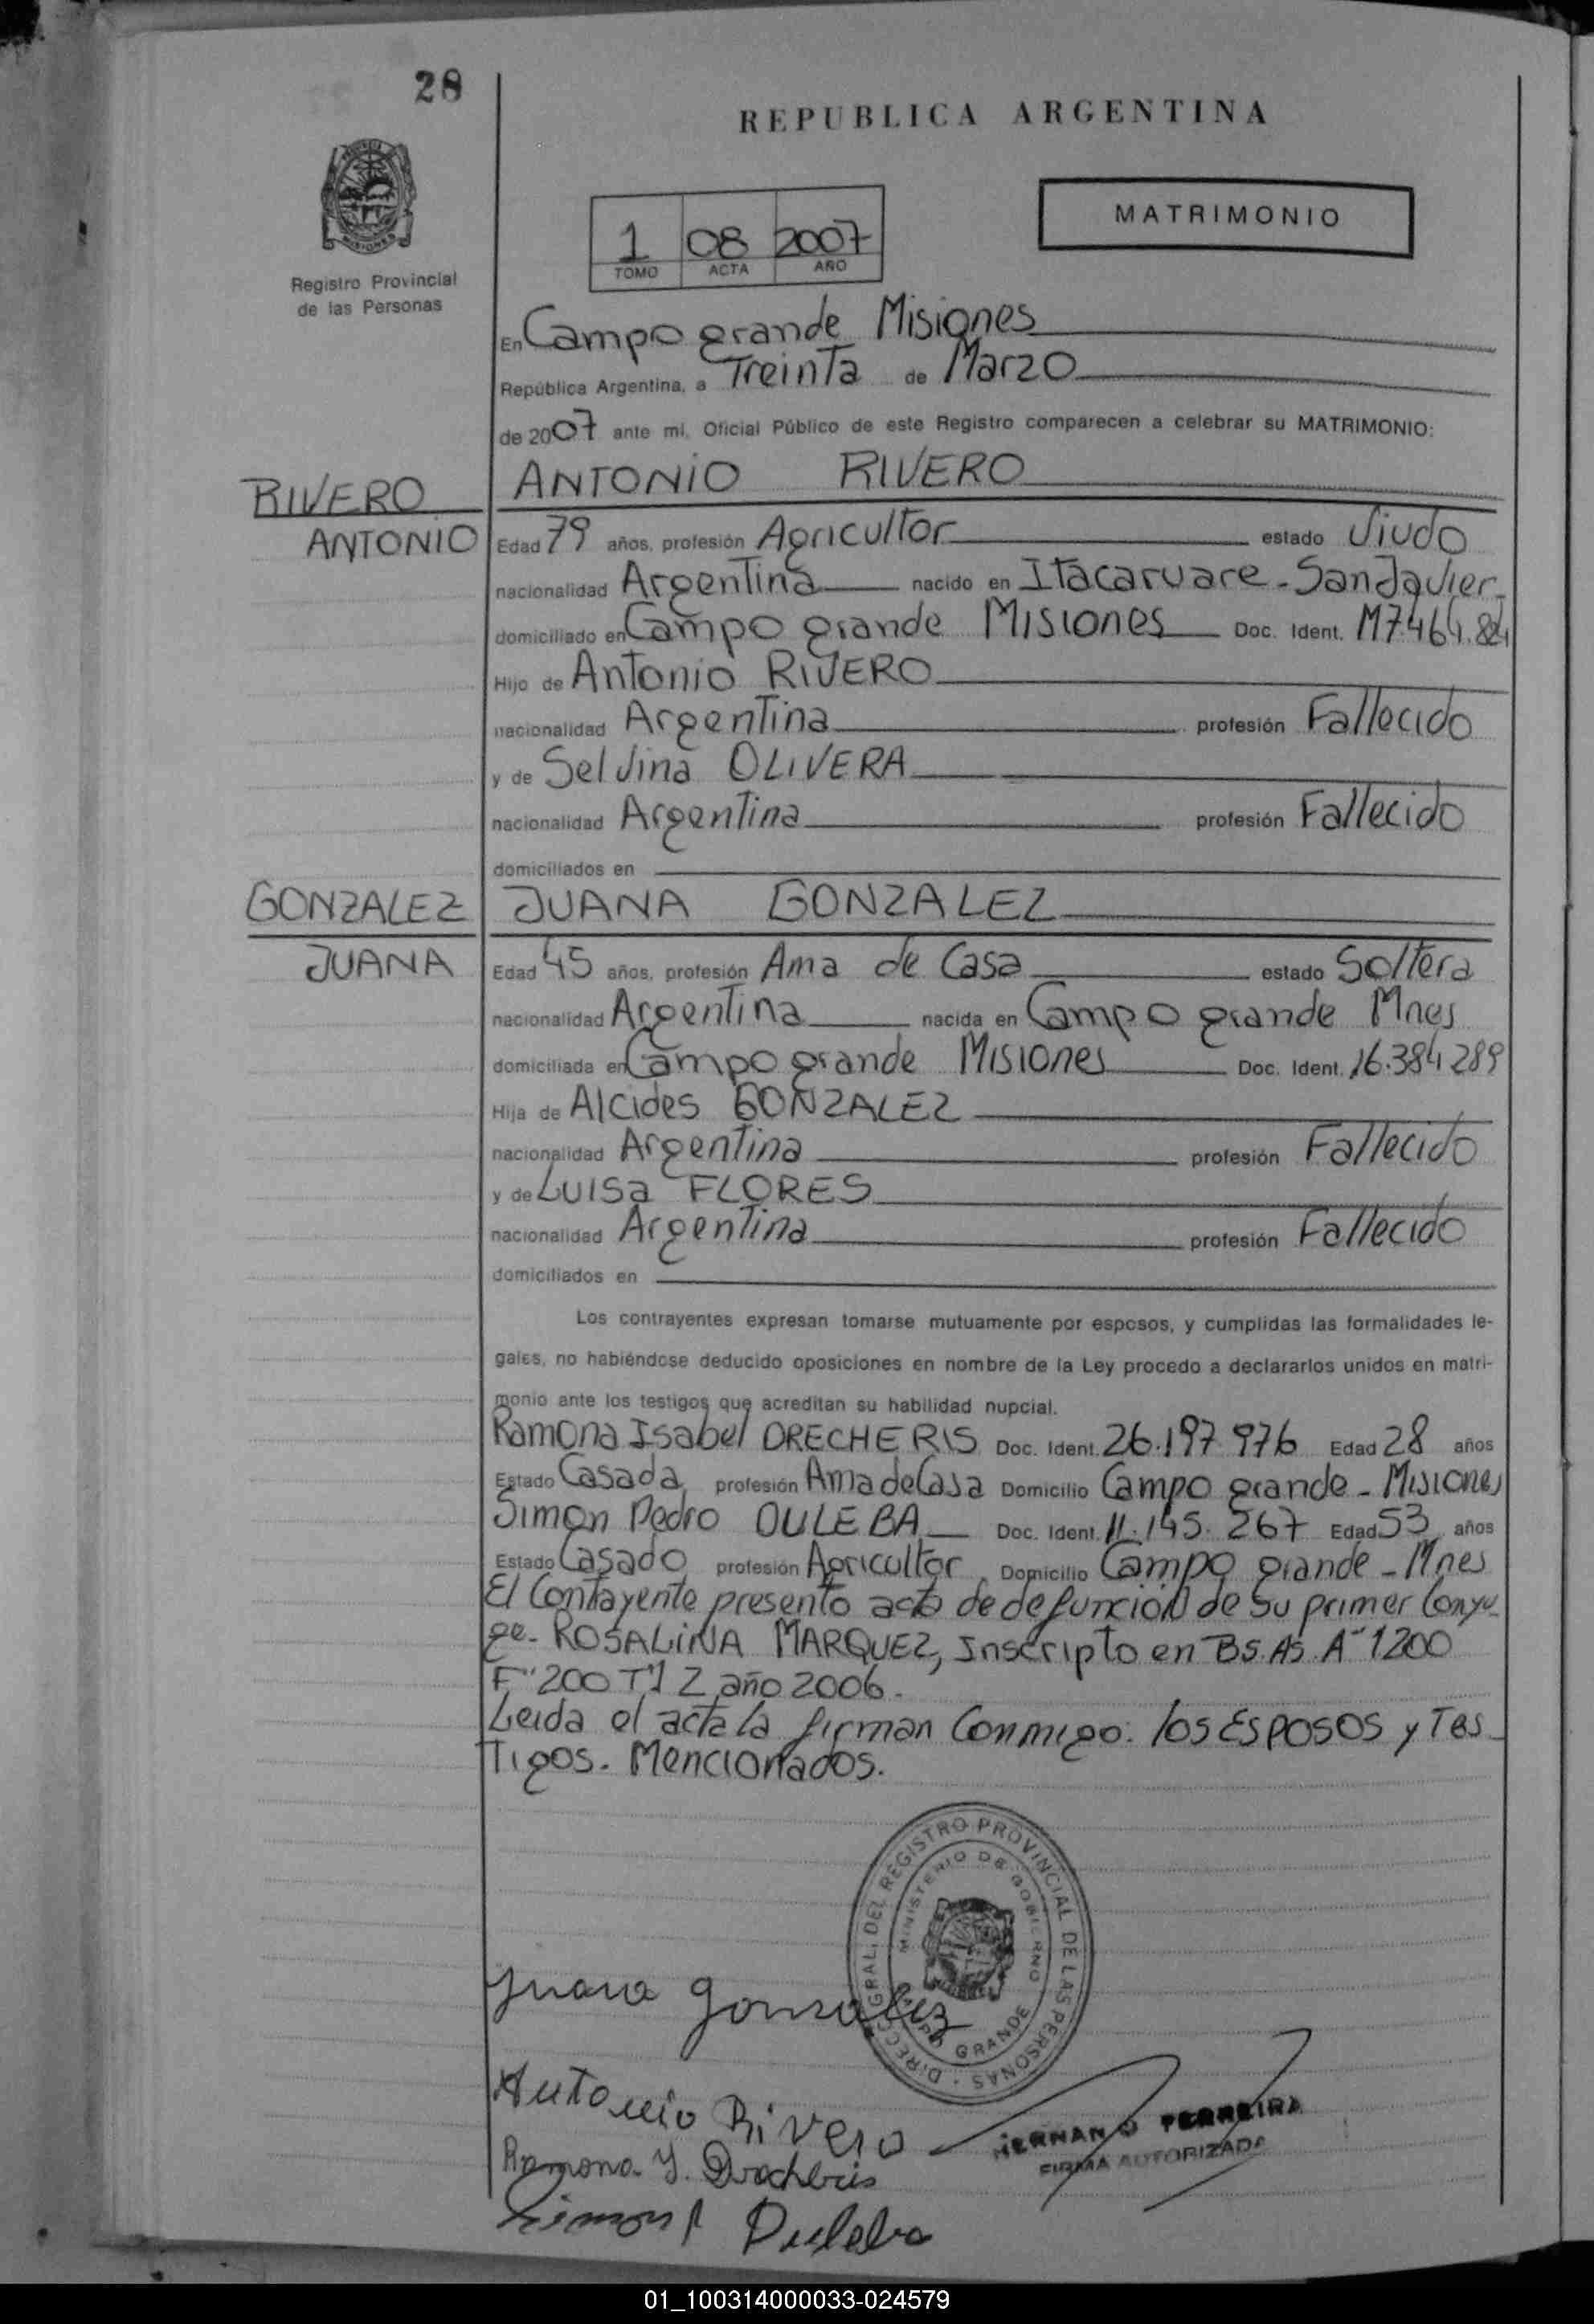 28
REPUBLICA ARGENTINA
MATRIMONIO
1 08 2007
TOMO ACTA AÑO
Registro Provincial
de las Personas
En Campo grande Misiones
República Argentina, a Treinta de Marzo
de 2007 ante mi, Oficial Público de este Registro comparecen a celebrar su MATRIMONIO:
RIVERO
ANTONIO
ANTONIO RIVERO
Edad 79 años, profesión Agricultor estado Viudo
nacionalidad Argentina nacido en Itacaruare - San Javier
domiciliado en Campo grande Misiones Doc. Ident. M7.464.
Hijo de Antonio RIVERO
nacionalidad Argentina profesión Fallecido
y de Selvina OLIVERA
nacionalidad Argentina profesión Fallecido
domiciliados en
GONZALEZ
JUANA
JUANA GONZALEZ
Edad 45 años, profesión Ama de Casa estado Soltera
nacionalidad Argentina nacida en Campo grande Mnes
domiciliada en Campo grande Misiones Doc. Ident. 16.384 289
Hija de Alcides GONZALEZ
nacionalidad Argentina profesión Fallecido
y de Luisa FLORES
nacionalidad Argentina profesión Fallecido
domiciliados en
Los contrayentes expresan tomarse mutuamente por esposos, y cumplidas las formalidades le-
gales, no habiéndose deducido oposiciones en nombre de la Ley procedo a declararlos unidos en matri-
monio ante los testigos que acreditan su habilidad nupcial.
Ramona Isabel DRECHERIS Doc. Ident. 26.197 976 Edad 28 años
Estado Casada profesión Ama de Casa Domicilio Campo grande - Misiones
Simon Pedro DULEBA Doc. Ident. 11.145.267 Edad 53 años
Estado Casado profesión Agricultor Domicilio Campo grande - Mnes
El Contayente presento acta de defuncion de su primer Conyu-
ge - ROSALINA MARQUEZ, Inscripto en BS.AS. A" 1200
F" 200 T"1 Z año 2006.-
Leida el acta la firman Conmigo: los ESPOSOS y Tes-
Tigos. Mencionados.
DIRECC. GRAL. DEL REGISTRO PROVINCIAL DE LAS PERSONAS
MINISTERIO DE GOBIERNO
CAMPO GRANDE
Juana Gonzalez
Antonio Rivero
HERNAN O FERREIRA
FIRMA AUTORIZADA
Ramona Y. Drecheris
Simon P Duleba
01_100314000033-024579